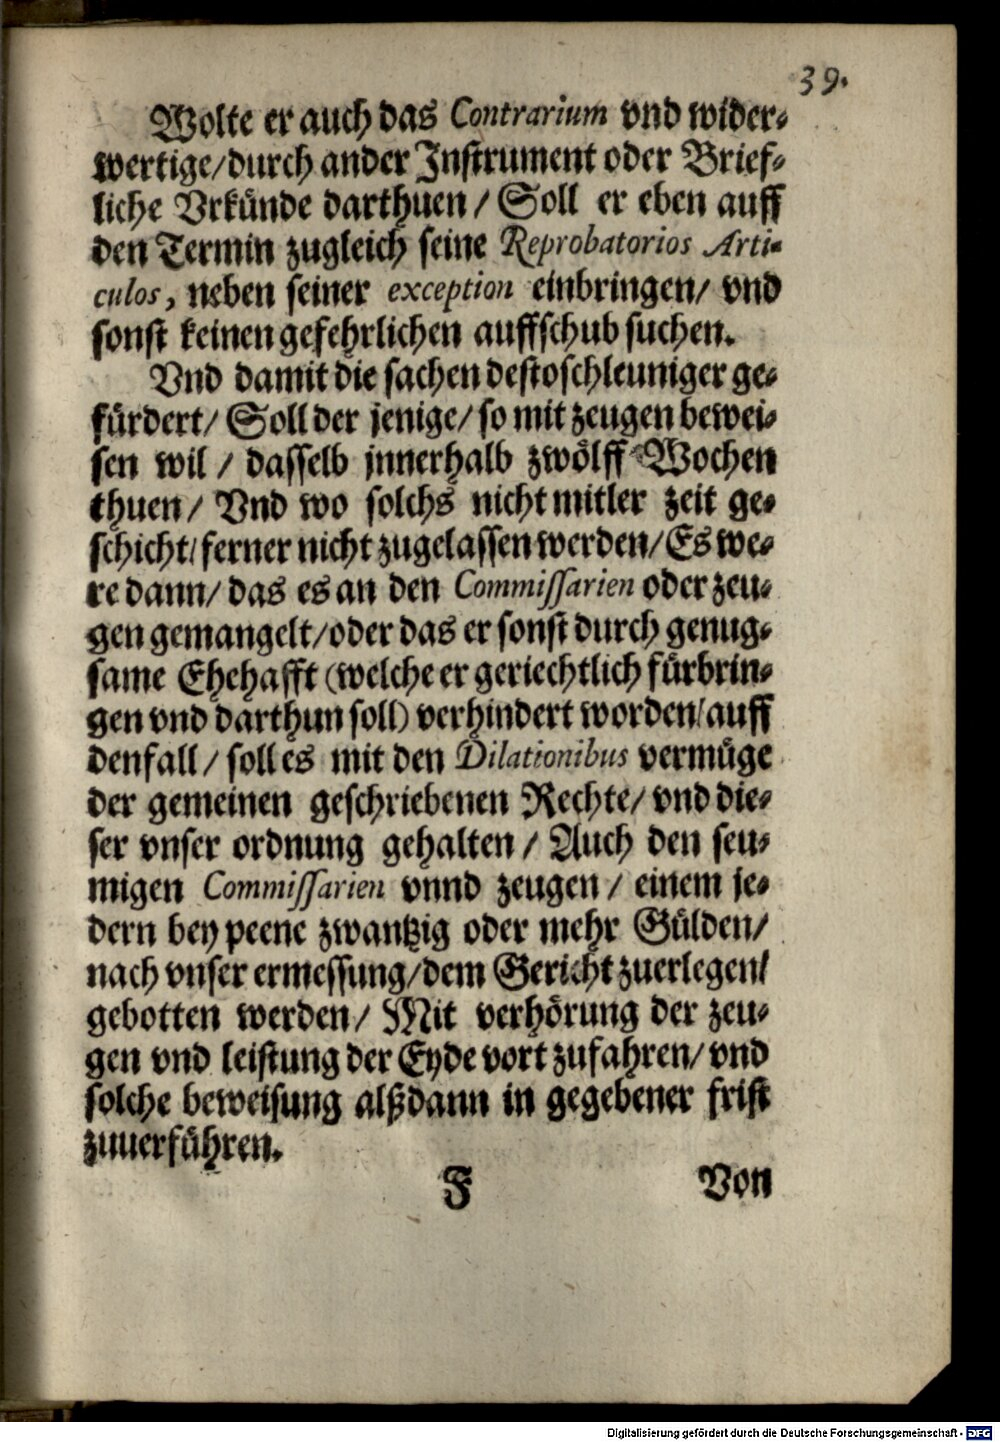 39.
Wolte er auch das Contrarium vnd wider-
wertige/durch ander Instrument oder Brief-
liche Vrkünde darthuen / Soll er eben auff
den Termin zugleich seine Reprobatorios Arti-
culos, neben seiner exception einbringen/ vnd
sonst keinen gefehrlichen auffschub suchen.
Vnd damit die sachen destoschleuniger ge-
fürdert/ Soll der jenige/ so mit zeugen bewei-
sen wil / dasselb jnnerhalb zwölff Wochen
thuen / Vnd wo solchs nicht mitler zeit ge-
schicht/ ferner nicht zugelassen werden/ Es we-
re dann/ das es an den Commissarien oder zeu-
gen gemangelt/oder das er sonst durch genug-
same Ehehafft (welche er geriechtlich fürbrin-
gen vnd darthun soll) verhindert worden/auff
denfall / soll es mit den Dilationibus vermüge
der gemeinen geschriebenen Rechte/ vnd die-
ser vnser ordnung gehalten / Auch den seu-
migen Commissarien vnnd zeugen / einem je-
dern bey peene zwantzig oder mehr Gülden/
nach vnser ermessung/dem Gericht zuerlegen/
gebotten werden/ Mit verhörung der zeu-
gen vnd leistung der Eyde vort zufahren/ vnd
solche beweisung alßdann in gegebener frist
zuuerführen.
F Von
Digitalisierung gefördert durch die Deutsche Forschungsgemeinschaft - DFG